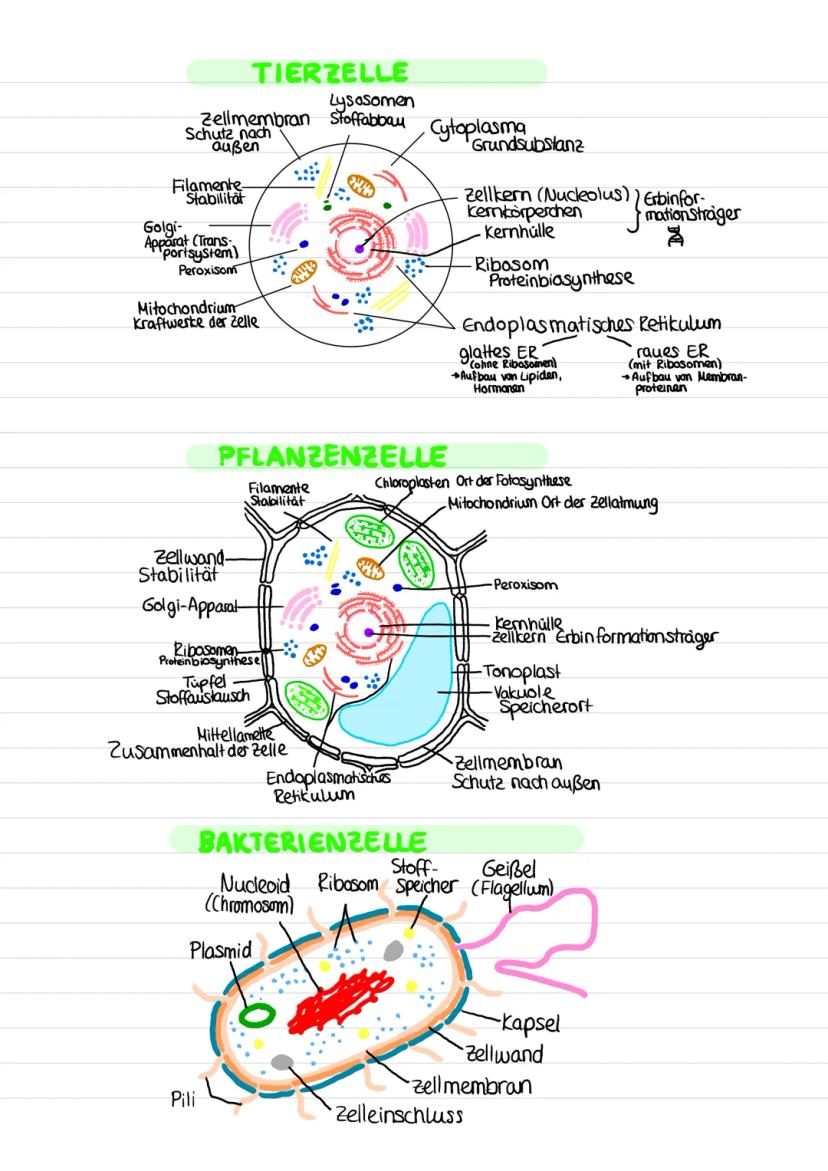 TIERZELLE
Lysosomen
Stoffabbau
Zellmembran
Schutz nach
außen
Cytoplasma
Grundsubstanz
Filamente
Stabilität
Zellkern (Nucleolus)
Kernkörperchen
Kernhülle
Erbinfor-
mationsträger
Golgi-
Apparat (Trans-
portsystem)
Peroxisom
Ribosom
Proteinbiosynthese
Mitochondrium
Kraftwerke der Zelle
Endoplasmatisches Retikulum
glattes ER
(ohne Ribosomen)
→Aufbau von Lipiden,
Hormonen
raues ER
(mit Ribosomen)
→Aufbau von Membran-
proteinen
PFLANZENZELLE
Filamente
Stabilität
Chloroplasten Ort der Fotosynthese
Mitochondrium Ort der Zellatmung
Zellwand
Stabilität
Peroxisom
Golgi-Apparat
Kernhülle
Zellkern Erbinformationsträger
Ribosomen
Proteinbiosynthese
Tüpfel
Stoffaustausch
Tonoplast
Vakuole
Speicherort
Mittellamelle
Zusammenhalt der Zelle
Zellmembran
Schutz nach außen
Endoplasmatisches
Retikulum
BAKTERIENZELLE
Nucleoid
(Chromosom)
Ribosom
Stoff-
speicher
Geißel
(Flagellum)
Plasmid
Kapsel
Zellwand
Zellmembran
Pili
Zelleinschluss